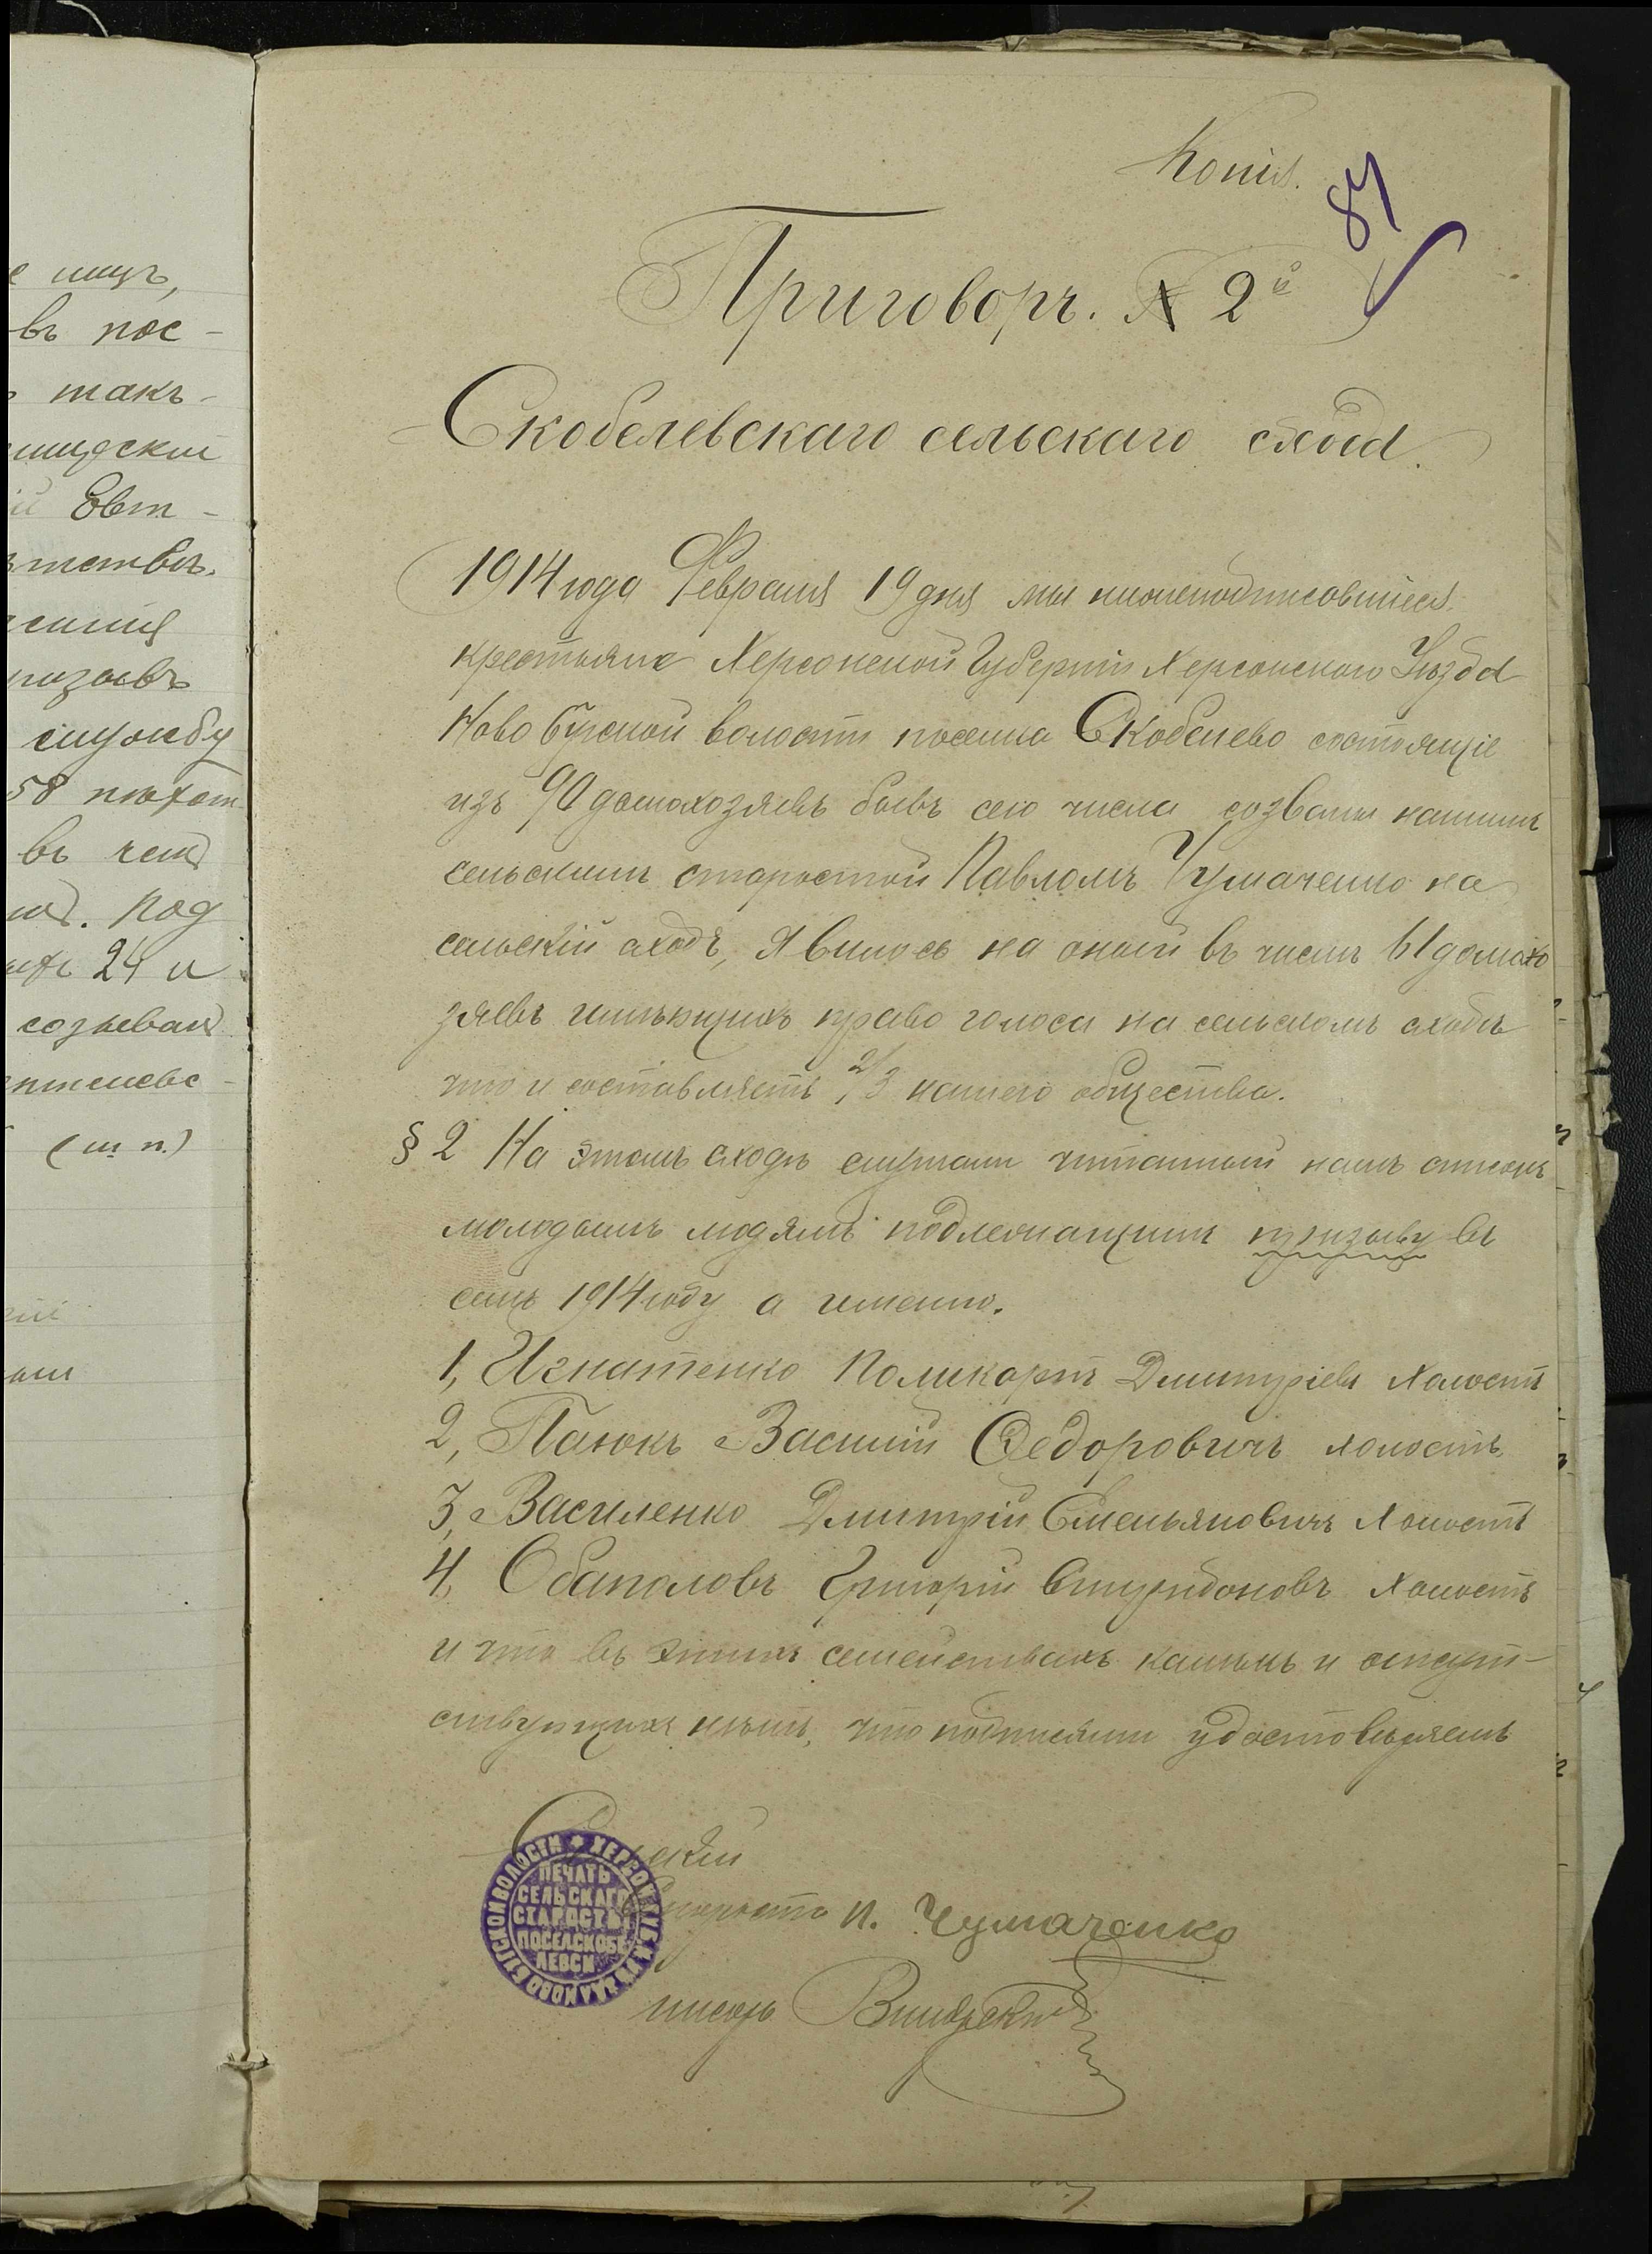 е ищъ,
въ пос-
такъ-
Евт-
призывъ
службу
58 пѣхот
въ чемъ
Под
24 и
созыван
(м. п.)
Копія.
87
Приговоръ. № 2й
Скобелевскаго сельскаго схода.
1914 года Февраля 19 дня мы нижеподписовшіеся
крестьяне Херсонской Губерніи Херсонскаго Уѣзда
Ново Бугской волости поселка Скобелево состоящіе
изъ 90 домохозяевъ бывъ сего числа созваны нашимъ
сельскимъ старостой Павломъ Чумаченко на
сельскій сходъ, явилось на оный въ числѣ 61 домохо
зяевъ имѣющихъ право голоса на сельскомъ сходѣ
что и составляетъ 2/3 нашего общества.
§ 2 На этомъ сходѣ слушали читанный намъ списокъ
молодымъ людямъ подлежащимъ призыву въ
семъ 1914 году а именно.
1, Игнатенко Поликарпъ Дмитріевъ Холостъ
2, Паюкъ Василій Федоровичъ холостъ
3, Василенко Дмитрій Емельяновичъ Холостъ
4, Обаполовъ Григорій Спиридоновъ Холостъ
и что въ этихъ семействахъ калѣкъ и отсут-
ствующихъ нѣтъ, что подписями удостовѣряемъ
Сельскій
Староста П. Чумаченко
ПЕЧАТЬ
СЕЛЬСКАГО
СТАРОСТЫ
ПОСЕЛ. СКОБЕ
ЛЕВСК.
писарь